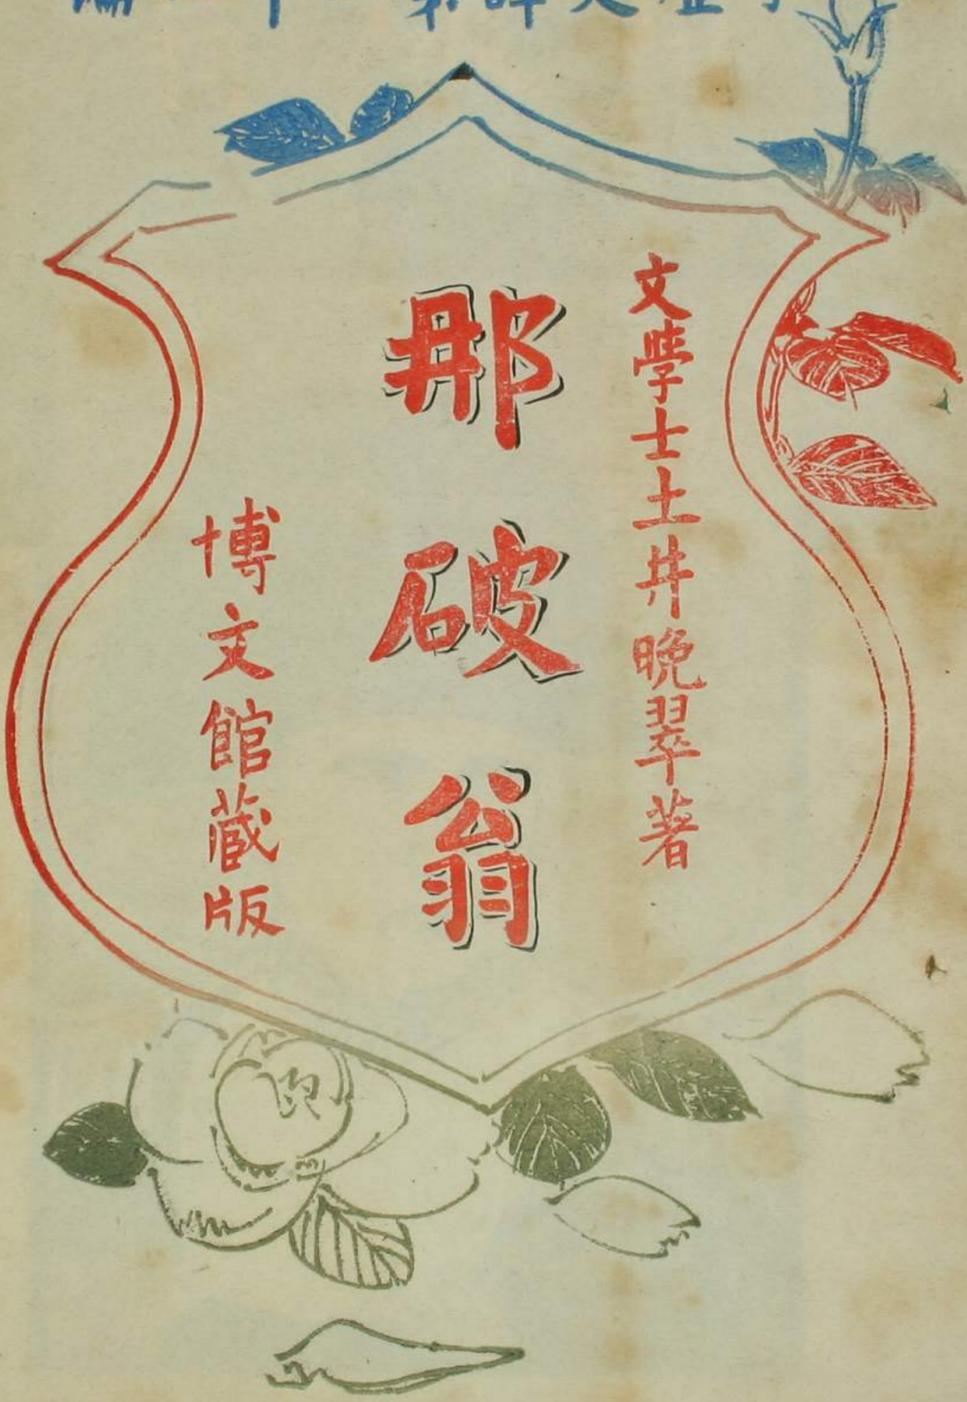 文學士土井晩翠著
那破翁
博文館蔵版